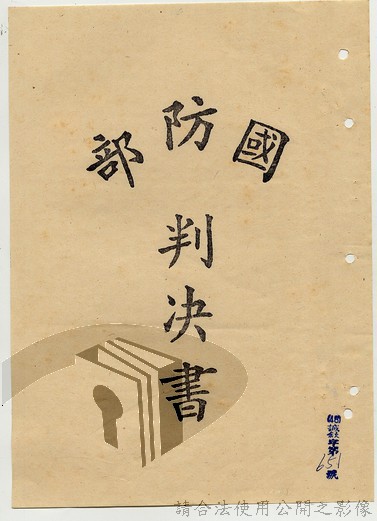 國防部
判決書
第651號
請合法使用公開之影像